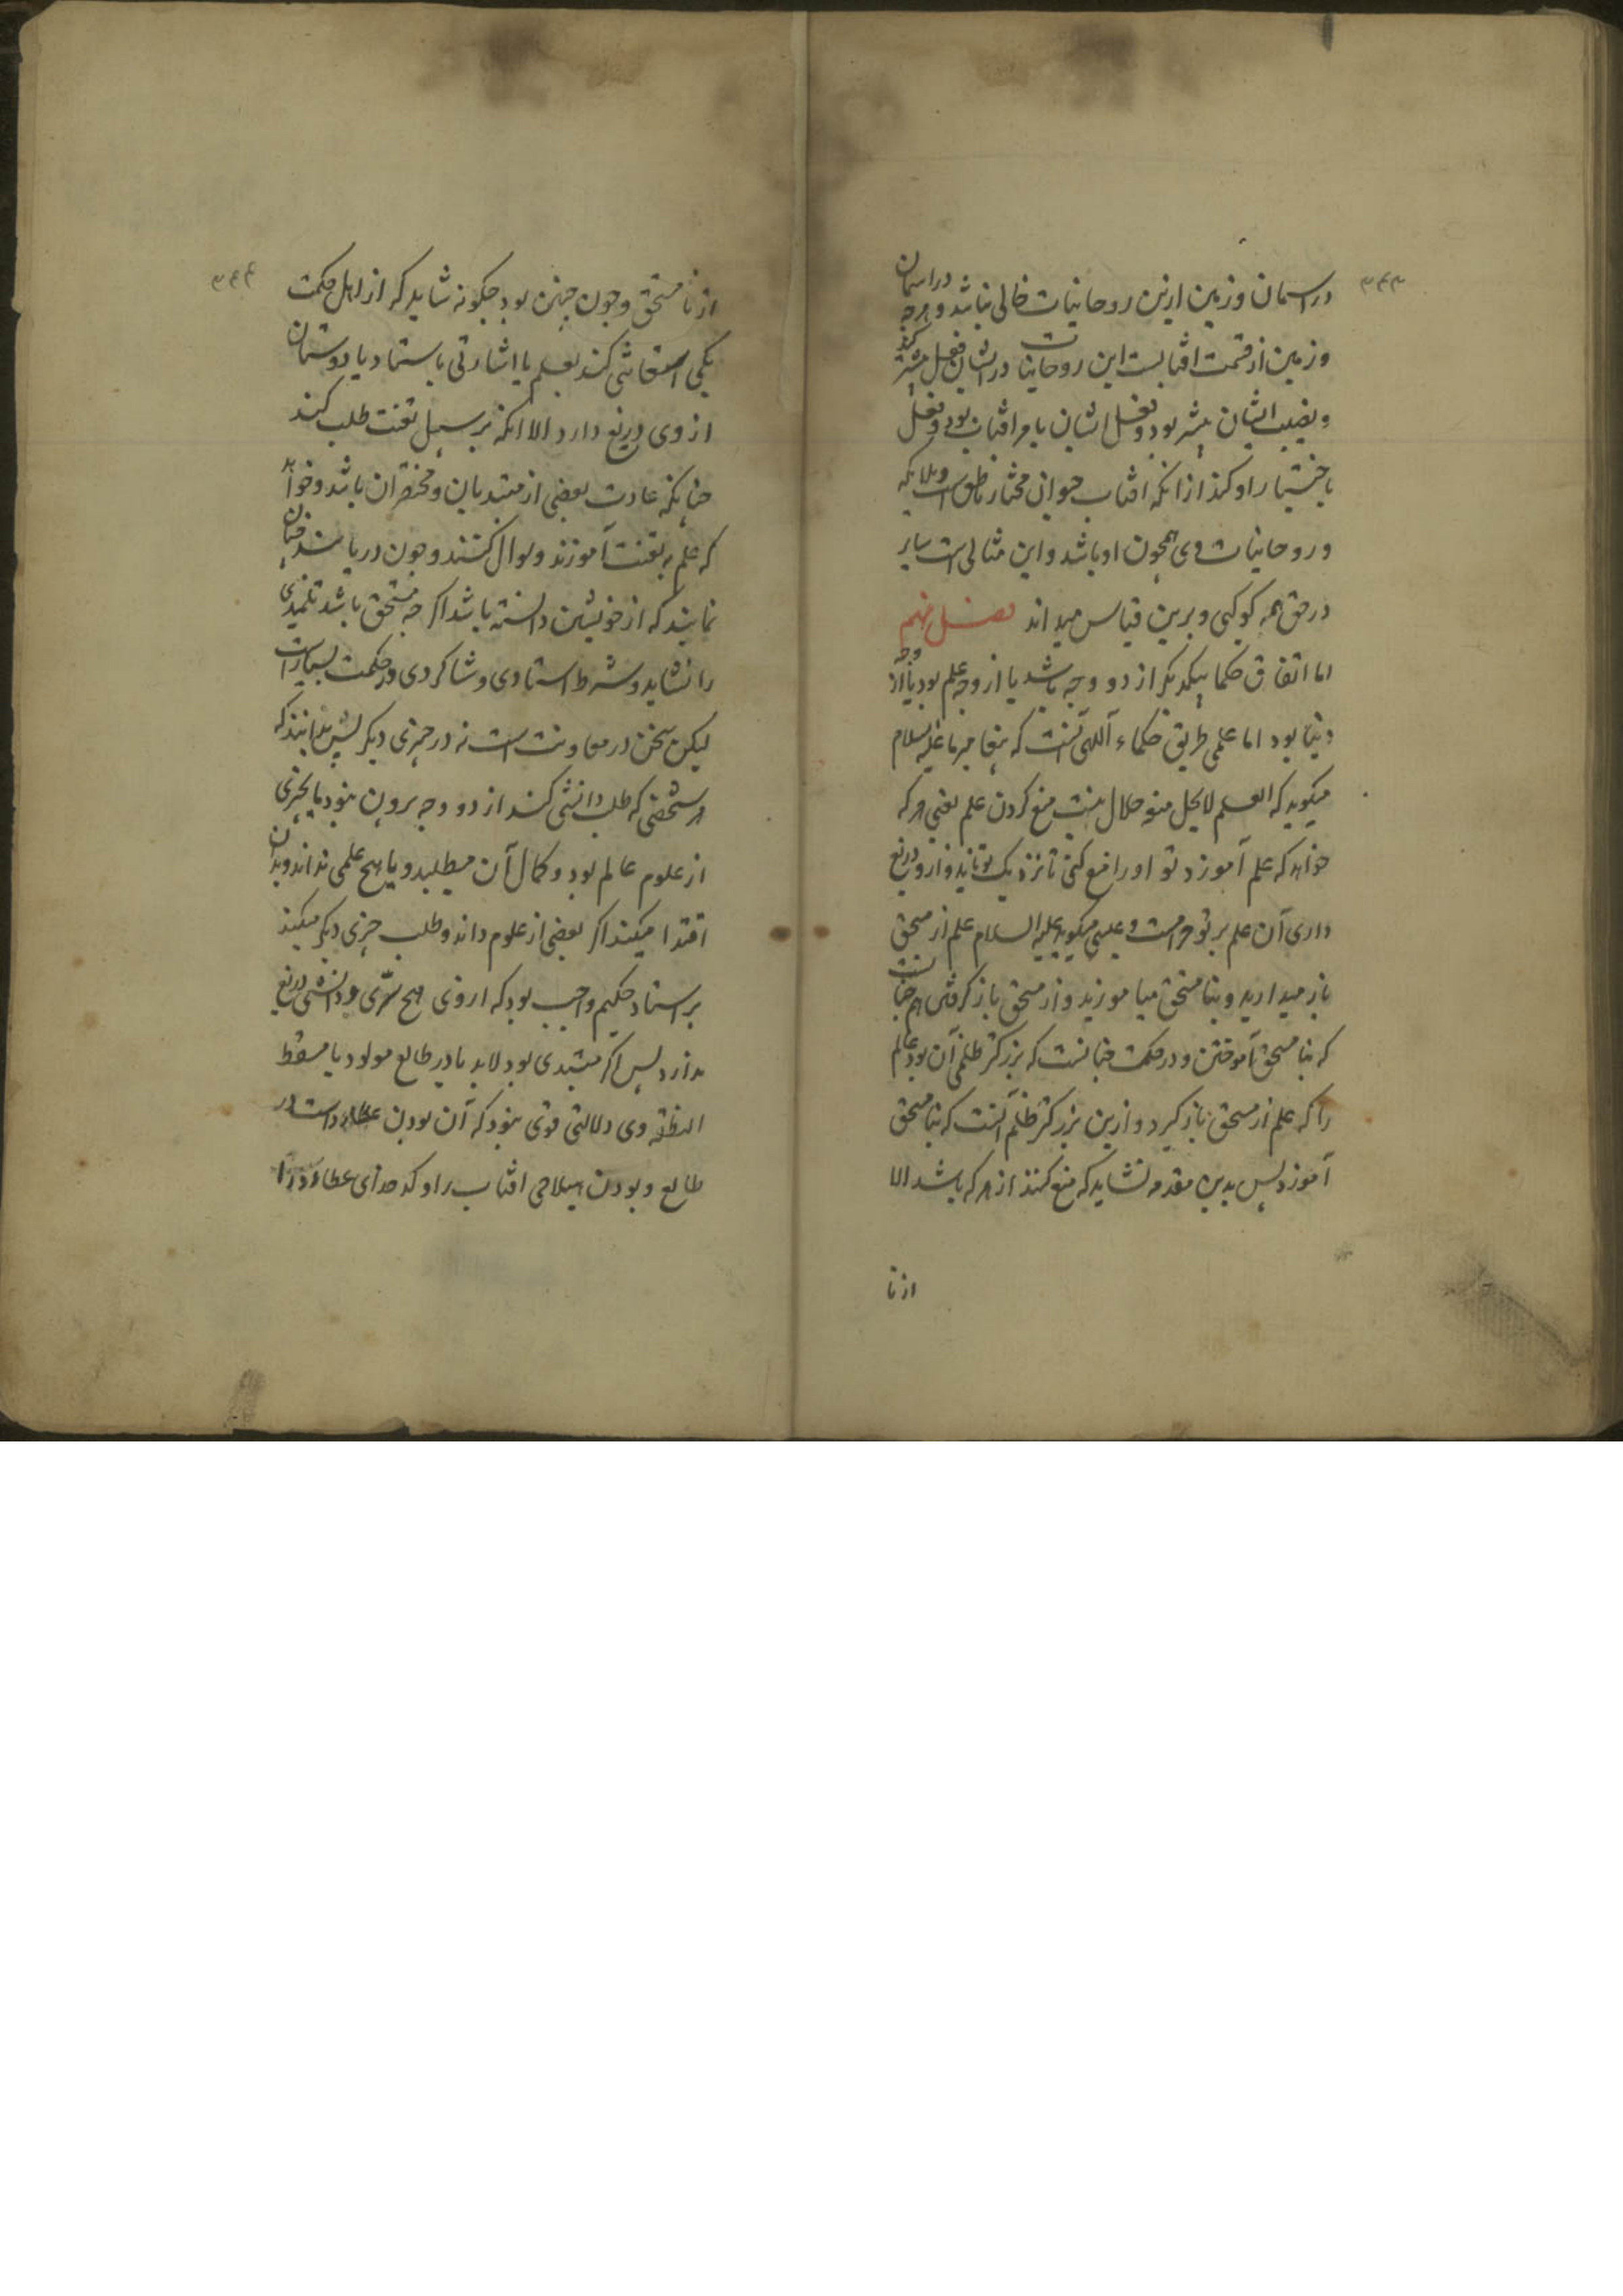 ۳۴۳
در اسمان و زمین ازین روحانیات خالی نباشد و هرچه در اسمان
و زمین از قسمت افتابست این روحانیات در ایشان فعل بیشتر کند
و نصیب ایشان بیشتر بود و فعل ایشان بامر افتاب بود و فعل
باختیار او کند از انکه افتاب حیوانی مختار ناطق است و ملایکه
و روحانیات وی همچون او باشد و این مثالی است سایر
در حق همه کوکبی و برین قیاس میداند فصل نهم
اما اتفاق حکما بیکدیکر از دو وجه باشد یا از وجه علم بود یا از وجه
دنیا بود اما علمی طریق حکماء آلهی آنست که پیغامبر ما علیه السلام
میکوید که العلم لا یحل منعه حلال نیست منع کردن علم یعنی هر که
خواهد که علم آموزد تو او را منع کنی تا نزدیک تو نیاید و ازو دریغ
داری آن علم بر تو حرامست و عیسی میکوید علیه السلام علم از مستحق
باز میدارید و بنا مستحق میاموزید و از مستحق باز کرفتن هم چنانست
که بنا مستحق آموختن و در حکمت چنانست که بزرکتر ظلمی آن بود عالم
را که علم از مستحق باز کیرد و ازین بزرکتر ظلم آنست که بنا مستحق
آموزد پس بدین مقدمه نشاید که منع کنند از هر که باشد الا
از نا
۳۴۴
از نا مستحق و چون چنین بود چکونه شاید که از اهل حکمت
یکی کند بعلم یا اشارتی باستاد یا دوستان
از وی دریغ دارد الا انکه بر سبیل تعنت طلب کند
چنانکه عادت بعضی از مبتدیان و مختصران باشد و خواهند
که علم بتعنت آموزند و سوال کنند و چون دریابند چنان
نمایند که از خویشتن دانسته باشد اکر چه مستحق باشد تلمیدی
را نشاید و شرط استادی و شاکردی در حکمت بسیارست
لیکن سخن در معاونت است نه در چیزی دیکر پس بدانند که
هر شخصی که طلب دانشی کند از دو وجه برون نبود یا بچیزی
از علوم عالم بود و کمال آن میطلبد و یا هیچ علمی نداند و بدان
اقتدا میکند اکر بعضی از علوم داند و طلب چیزی دیکر میکند
بر استاد حکیم واجب بود که از وی هیچ سری و دانشی دریغ
ندارد پس اکر مبتدی بود لابد یا در طالع مولود یا مسقط
النطفه وی دلالتی قوی بود که آن بودن عطارد است در
طالع و بودن هیلاجی افتاب را و کدخدای عطارد را